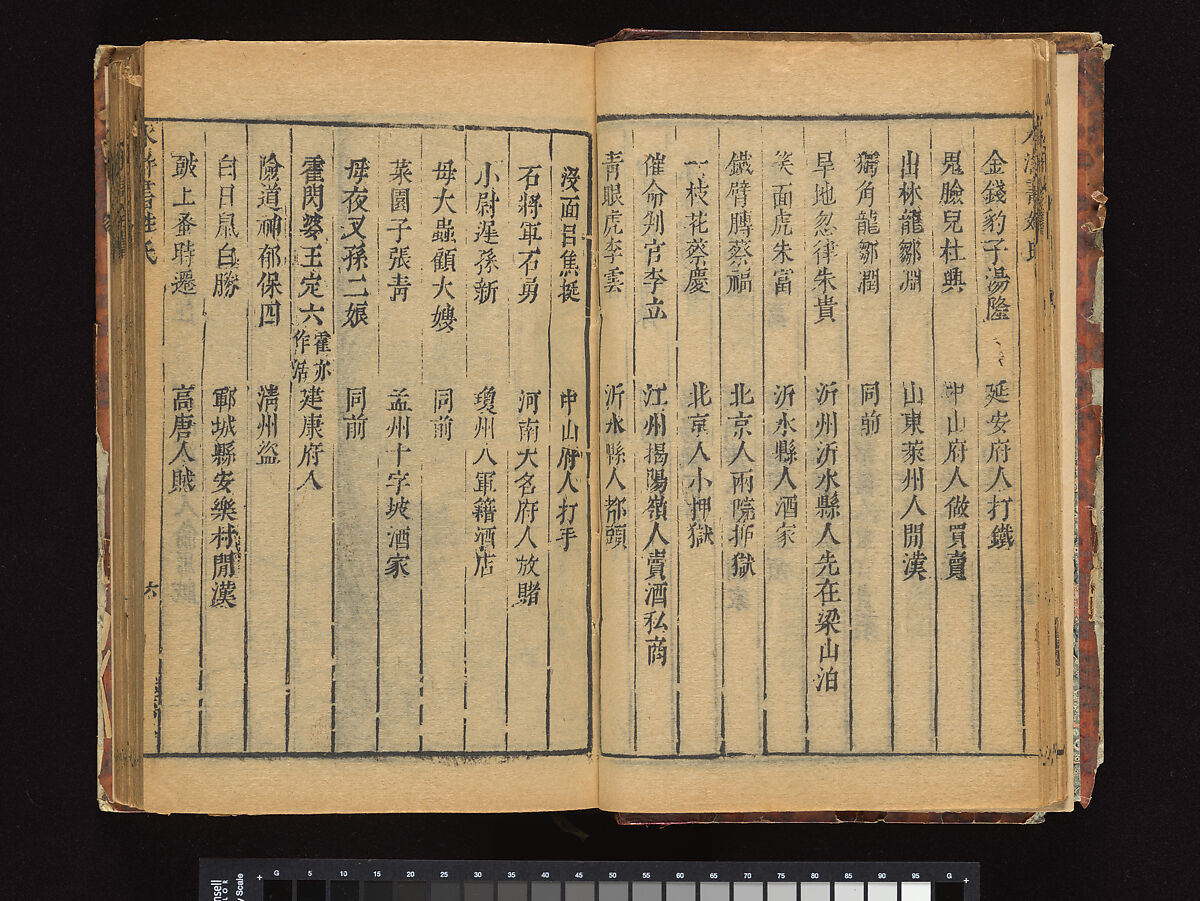 金錢豹子湯隆 延安府人打鐵
鬼臉兒杜興 中山府人做買賣
出林龍鄒淵 山東萊州人閒漢
獨角龍鄒潤 同前
旱地忽律朱貴 沂州沂水縣人先在梁山泊
笑面虎朱富 沂水縣人酒家
鐵臂膊蔡福 北京人兩院押獄
一枝花蔡慶 北京人小押獄
催命判官李立 江州揭陽嶺人賣酒私商
青眼虎李雲 沂水縣人都頭
沒面目焦挺 中山府人打手
石將軍石勇 河南大名府人放賭
小尉遲孫新 瓊州人軍籍酒店
母大蟲顧大嫂 同前
菜園子張青 孟州十字坡酒家
母夜叉孫二娘 同前
霍閃婆王定六 霍亦作活 建康府人
險道神郁保四 清州盜
白日鼠白勝 鄆城縣安樂村閒漢
鼓上蚤時遷 高唐人賊
水滸書姓氏
六
0 5 10 15 20 25 30 35 40 45 50 55 60 65 70 75 80 85 90 95